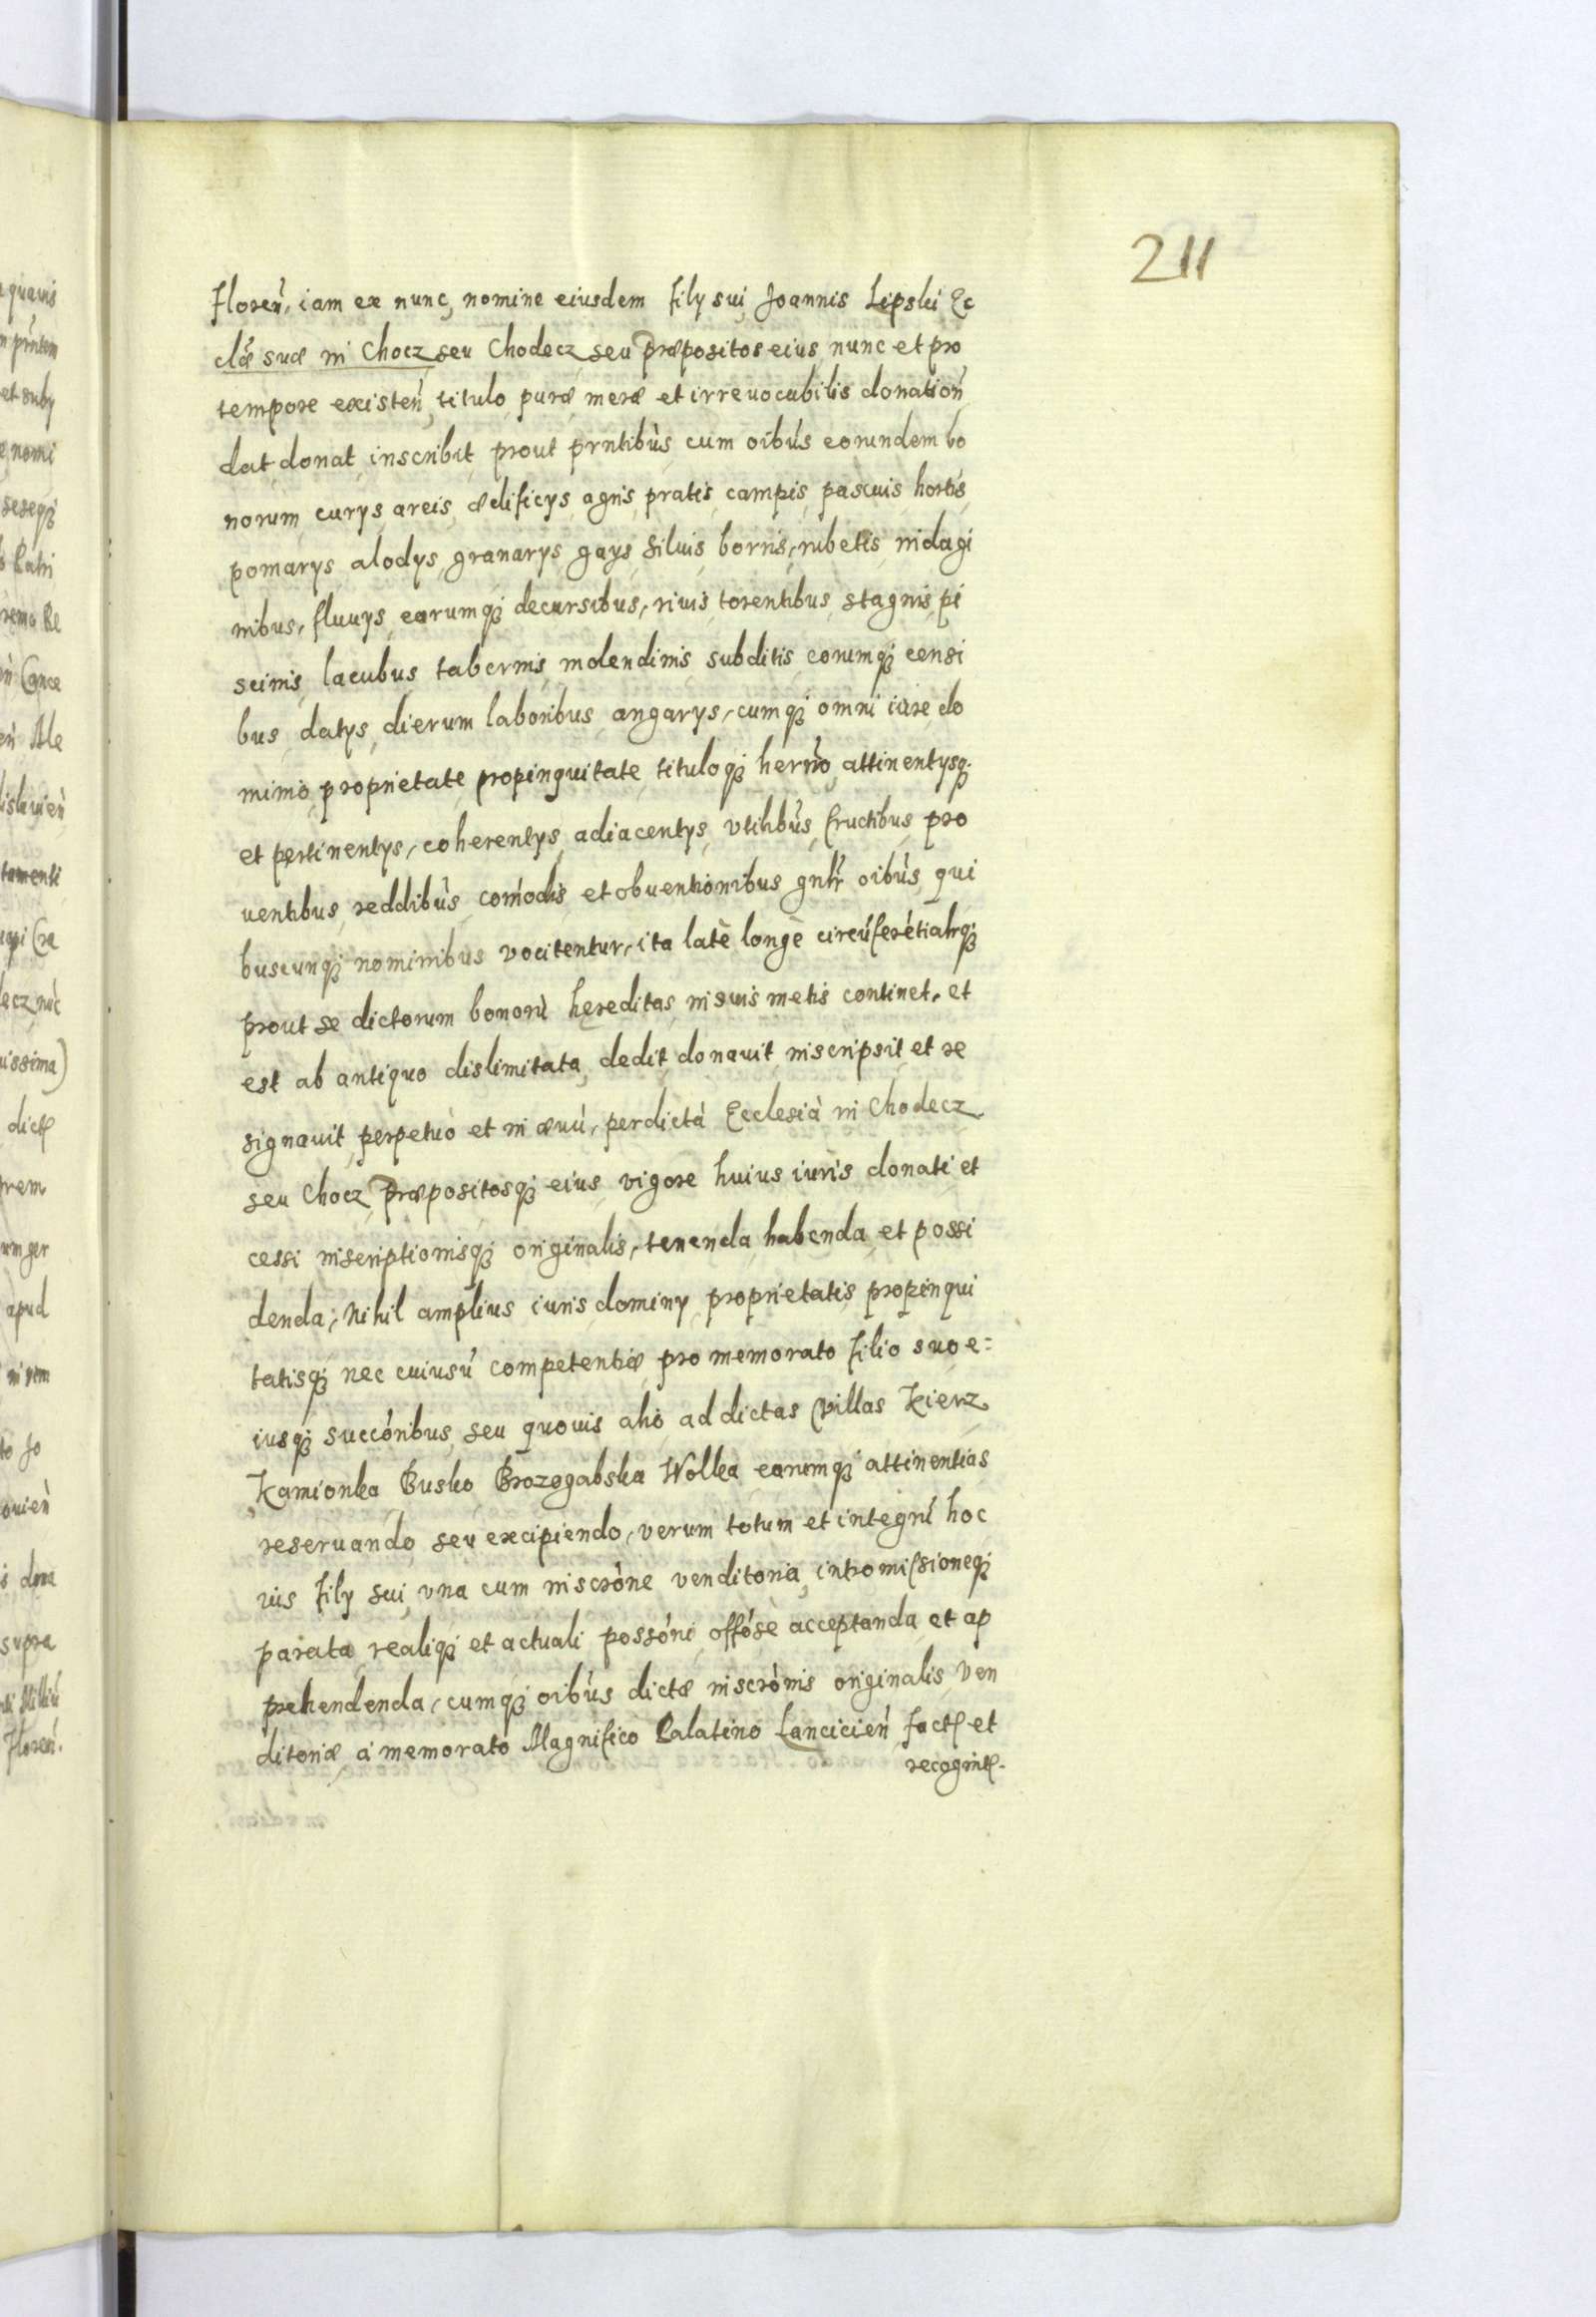 211
Floreń, iam ex nunc, nomine eiusdem Filÿ sui Joannis Lipski Ec
clǽ suæ in Chocz seu Chodecz, seu Præpositos eius, nunc et pro
tempore existeń, titulo puræ meræ et irreuocabilis donatioń
dat donat inscribit prout prntibùs, cum oibús eorundem bo
norum curÿs, areis, ædificÿs, agris, pratis, campis, pascuis, hortis,
pomarÿs, alodÿs, granarÿs, gaÿs, siluis, borris, rubetis, indagi
nibus, fluuÿs, earumqꝫ decursibus, riuis, torentibus, stagnis, pi
scinis, lacubus, tabernis, molendinis, subditis, eorumqꝫ censi
bus, datÿs, dierum laboribus, angarÿs, cumqꝫ omni iure, do
minio, proprietate, propinquitate, tituloqꝫ herrio, attinentÿsqꝫ
et pertinentÿs, coherentÿs, adiacentÿs, vtilibus, fructibus, pro
uentibus, reddibùs, comódis, et obuentionibus gnlr oibùs, qui
buscunqꝫ nominibus vocitentur, ita latè longè circúferétialrqꝫ
prout se dictorum bonorù hęreditas, in suis metis continet, et
est ab antiquo dislimitata, dedit, donauit, inscripsit, et re
signauit, perpetuò et in æuú, per dictá Ecclesià in Chodecz
seu Chocz Præpositosqꝫ eius, vigore huius iuris donati et
cessi inscriptionisqꝫ originalis, tenenda, habenda, et possi
denda, Nihil amplius iuris dominÿ, proprietatis, propinqui
tatisqꝫ nec cuiusù competentiæ, pro memorato Filio suo e=
iusqꝫ succóribus, seu quouis alio, ad dictas villas Kierz
Kamionka Busko Brozogabska Wolka earumqꝫ attinentias
reseruando, seu excipiendo, verum totum et integrú hoc
ius Filÿ sui, vna cum inscróne venditoria, intromissioneqꝫ
parata, realiqꝫ et actuali possóni, offóse acceptanda, et ap
prehendenda, cumqꝫ oibùs dictæ inscrónis originalis, ven
ditoriæ à memorato Magnifico Palatino Lancicień fact et
recognit.